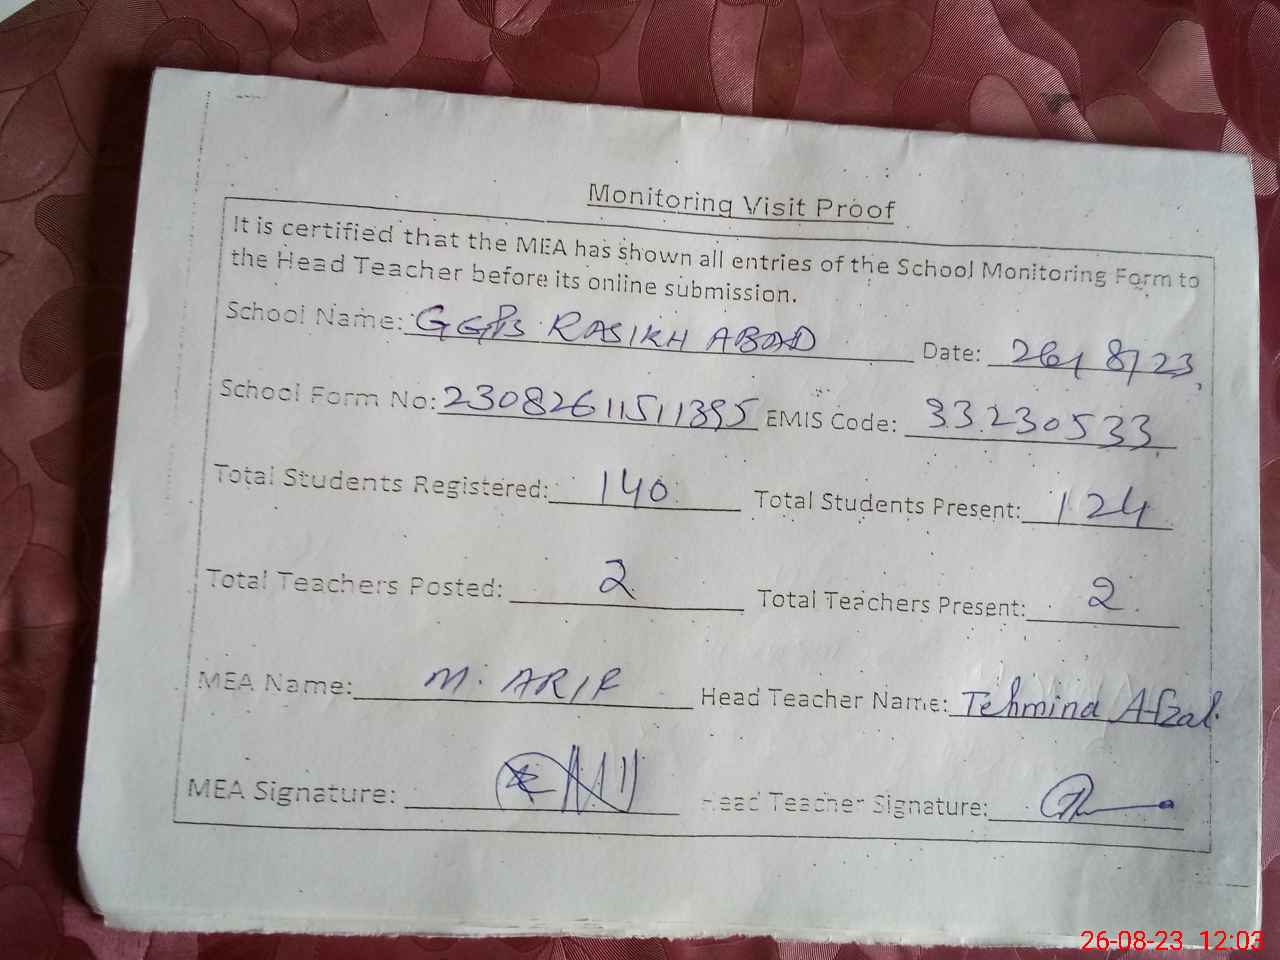 Monitoring Visit Proof
It is certified that the MEA has shown all entries of the School Monitoring Form to
the Head Teacher before its online submission.
School Name: GGPS RASIKH ABAD Date: 26/8/23
School Form No: 23082611511395 EMIS Code: 33230533
Total Students Registered: 140 Total Students Present: 124
Total Teachers Posted: 2 Total Teachers Present: 2
MEA Name: M. ARIF Head Teacher Name: Tehmina Afzal
MEA Signature: Head Teacher Signature:
26-08-23 12:03